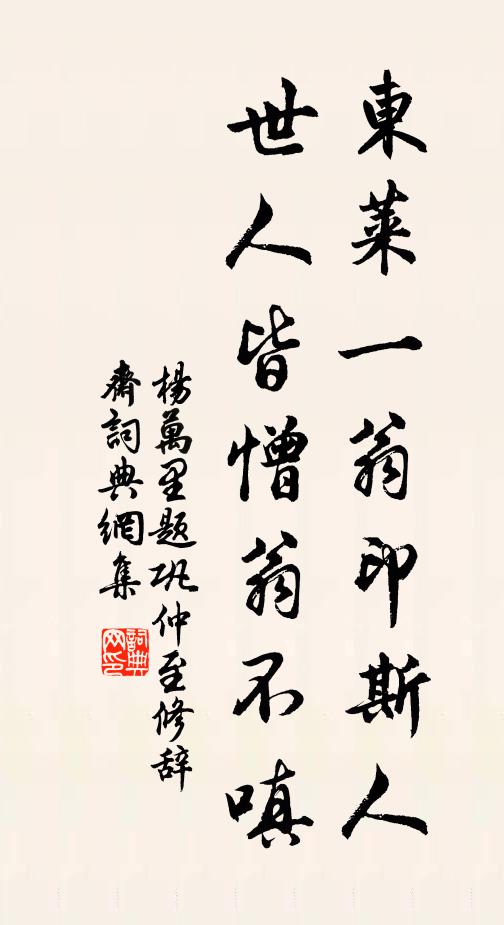 東萊一翁印斯人
世人皆憎翁不嗔
楊萬里題巩仲至修辞
齋詞典網集
詞典
网印